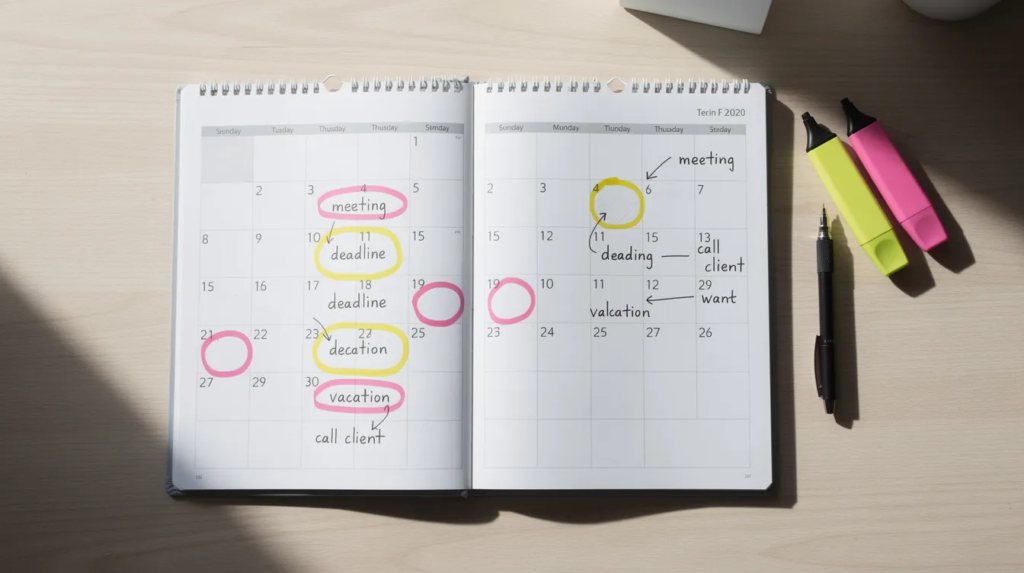 Terin F 2020
Sunday Tunday Thusday Thusday Semday
1
2 3 4 5
meeting
8 9 10 11 15
deadline
15 16 17 18 19
deadline
21 22 23 22 25
decation
27 29 30
vacation
call client
Sunday Monday Tlunday Thuoday Steday
meeting
2 3 4 6 7
15 12 11 15 13
deading call
client
19 10 11 12 29
valcation want
23 24 25 27 26